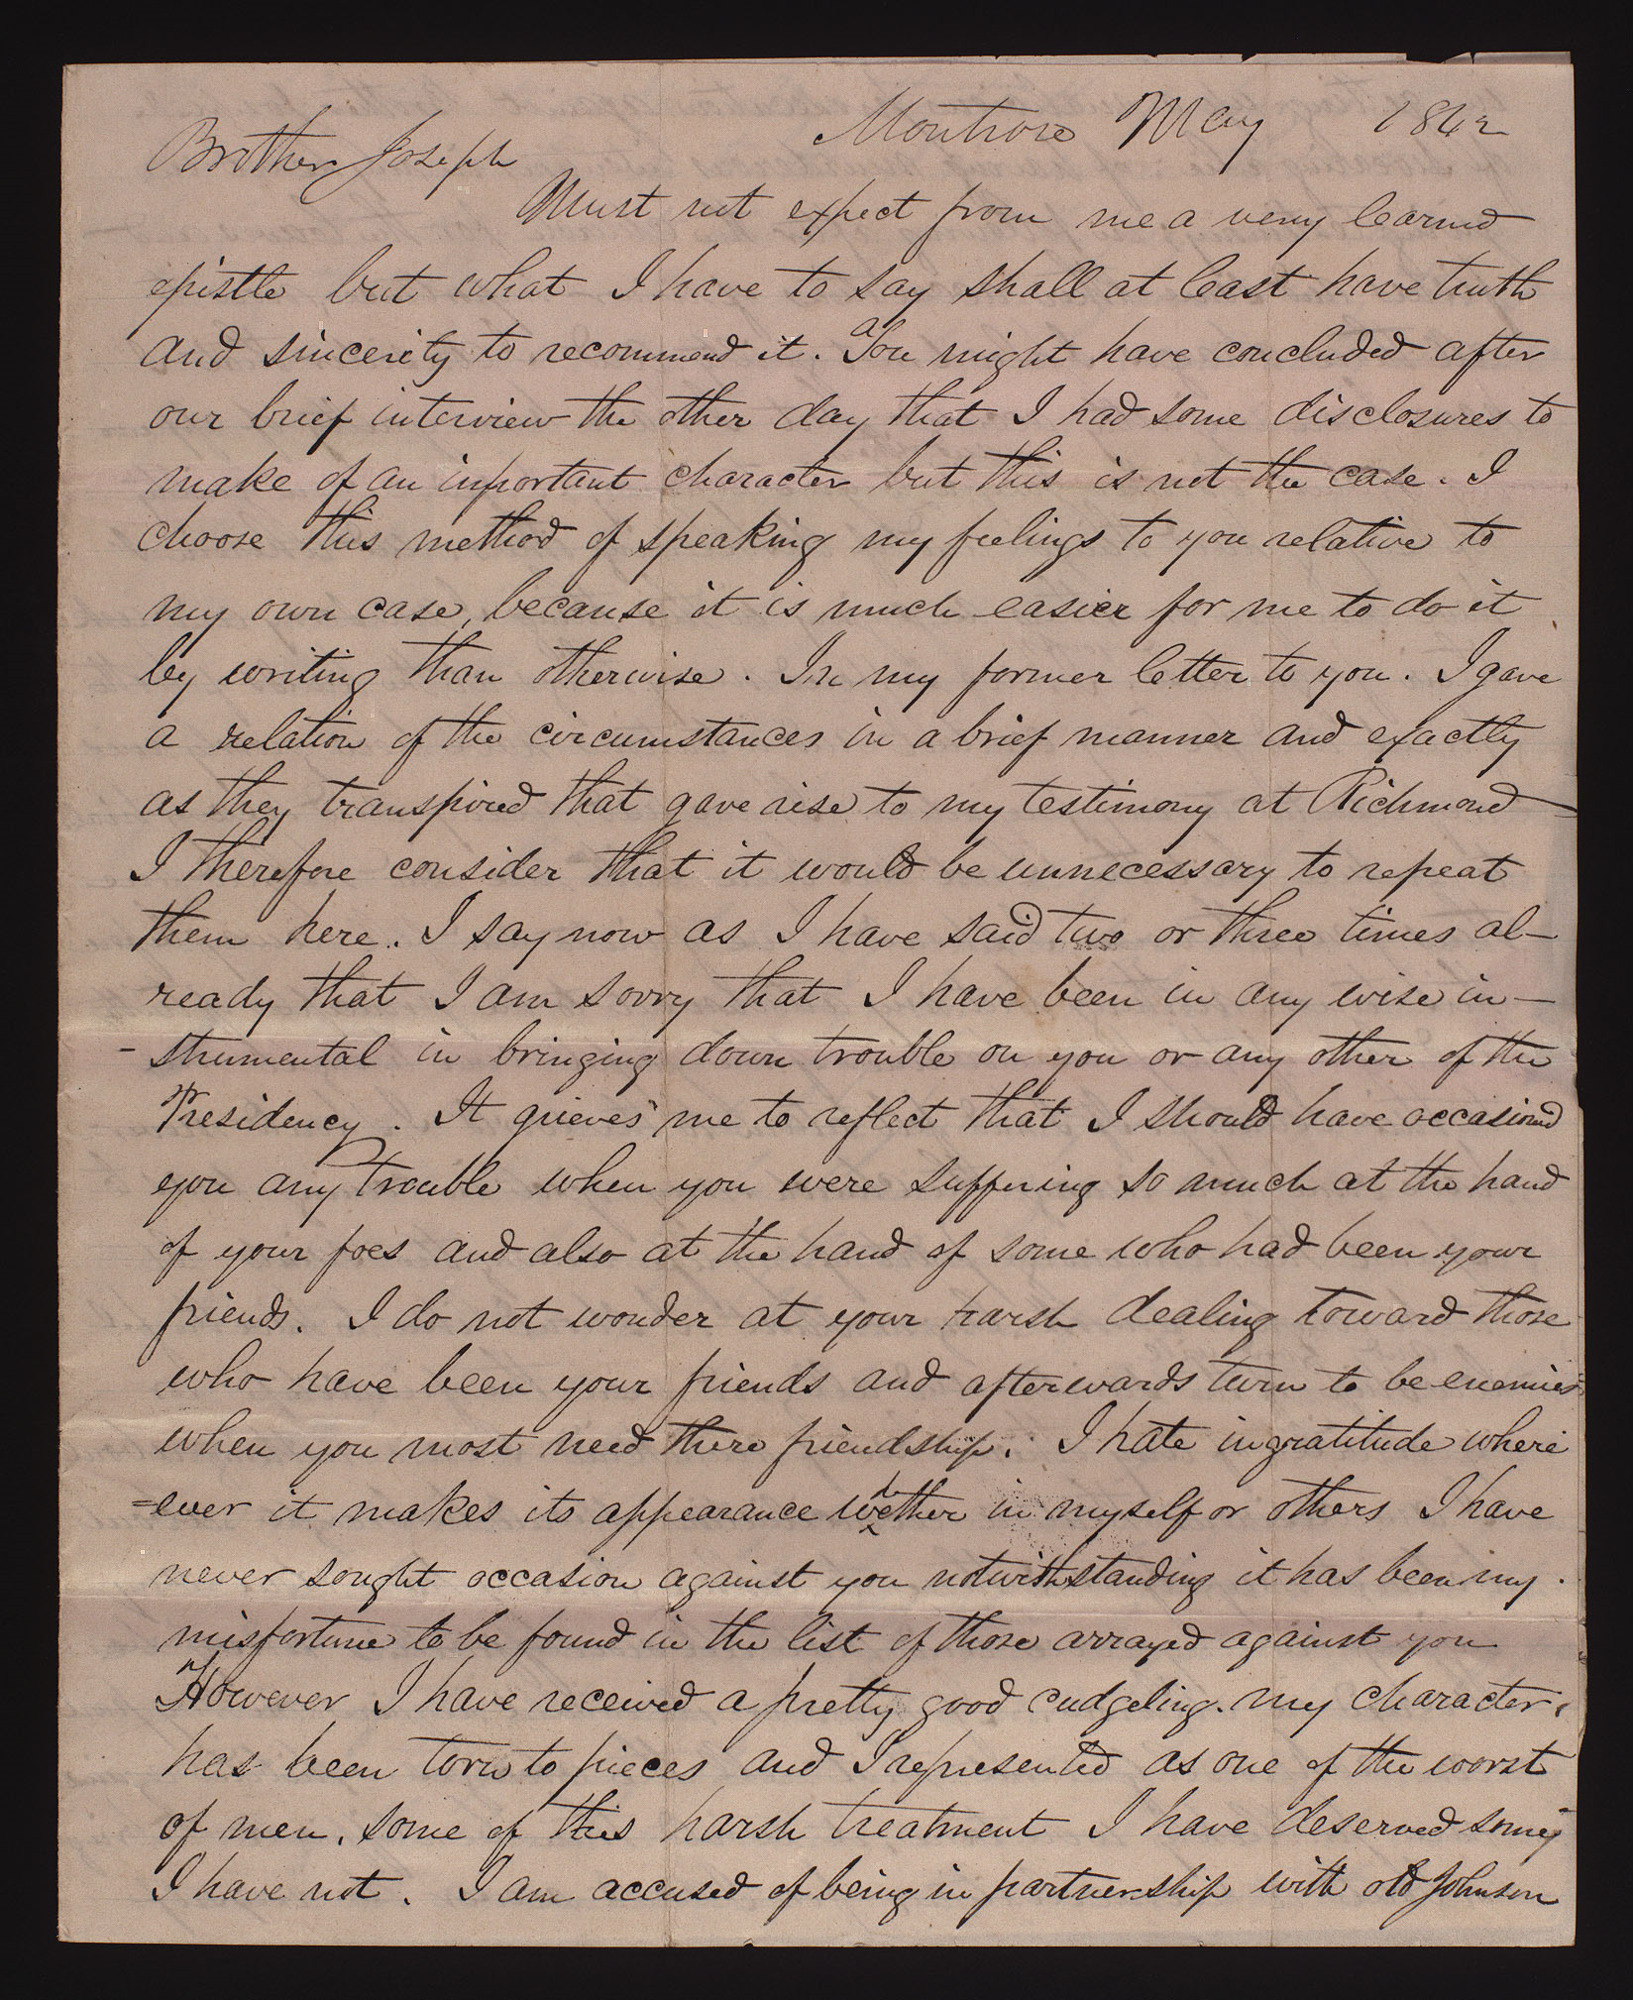 Montrose May 1842
Brother Joseph
Must not expect from me a very learned
epistle but what I have to say shall at least have truth
and sincerity to recommend it. You might have concluded after
our brief interview the other day that I had some disclosures to
make of an important character but this is not the case. I
choose this method of speaking my feelings to you relative to
my own case, because it is much easier for me to do it
by writing than otherwise. In my former letter to you. I gave
a relation of the circumstances in a brief manner and exactly
as they transpired that gave rise to my testimony at Richmond
I therefore consider that it would be unnecessary to repeat
them here. I say now as I have said two or three times al-
ready that I am sorry that I have been in any wise in-
-strumental in bringing down trouble on you or any other of the
Presidency. It grieves me to reflect that I should have occasioned
you any trouble when you were suffering so much at the hand
of your foes and also at the hand of some who had been your
friends. I do not wonder at your harsh dealing toward those
who have been your friends and afterwards turn to be enemies
when you most need there friendship. I hate ingratitude where
=ever it makes its appearance whether in myself or others I have
never sought occasion against you notwithstanding it has been my
misfortune to be found in the list of those arrayed against you
However I have received a pretty good cudgeling. my character
has been torn to pieces and I represented as one of the worst
of men. some of this harsh treatment I have deserved some
I have not. I am accused of being in partnership with old Johnson